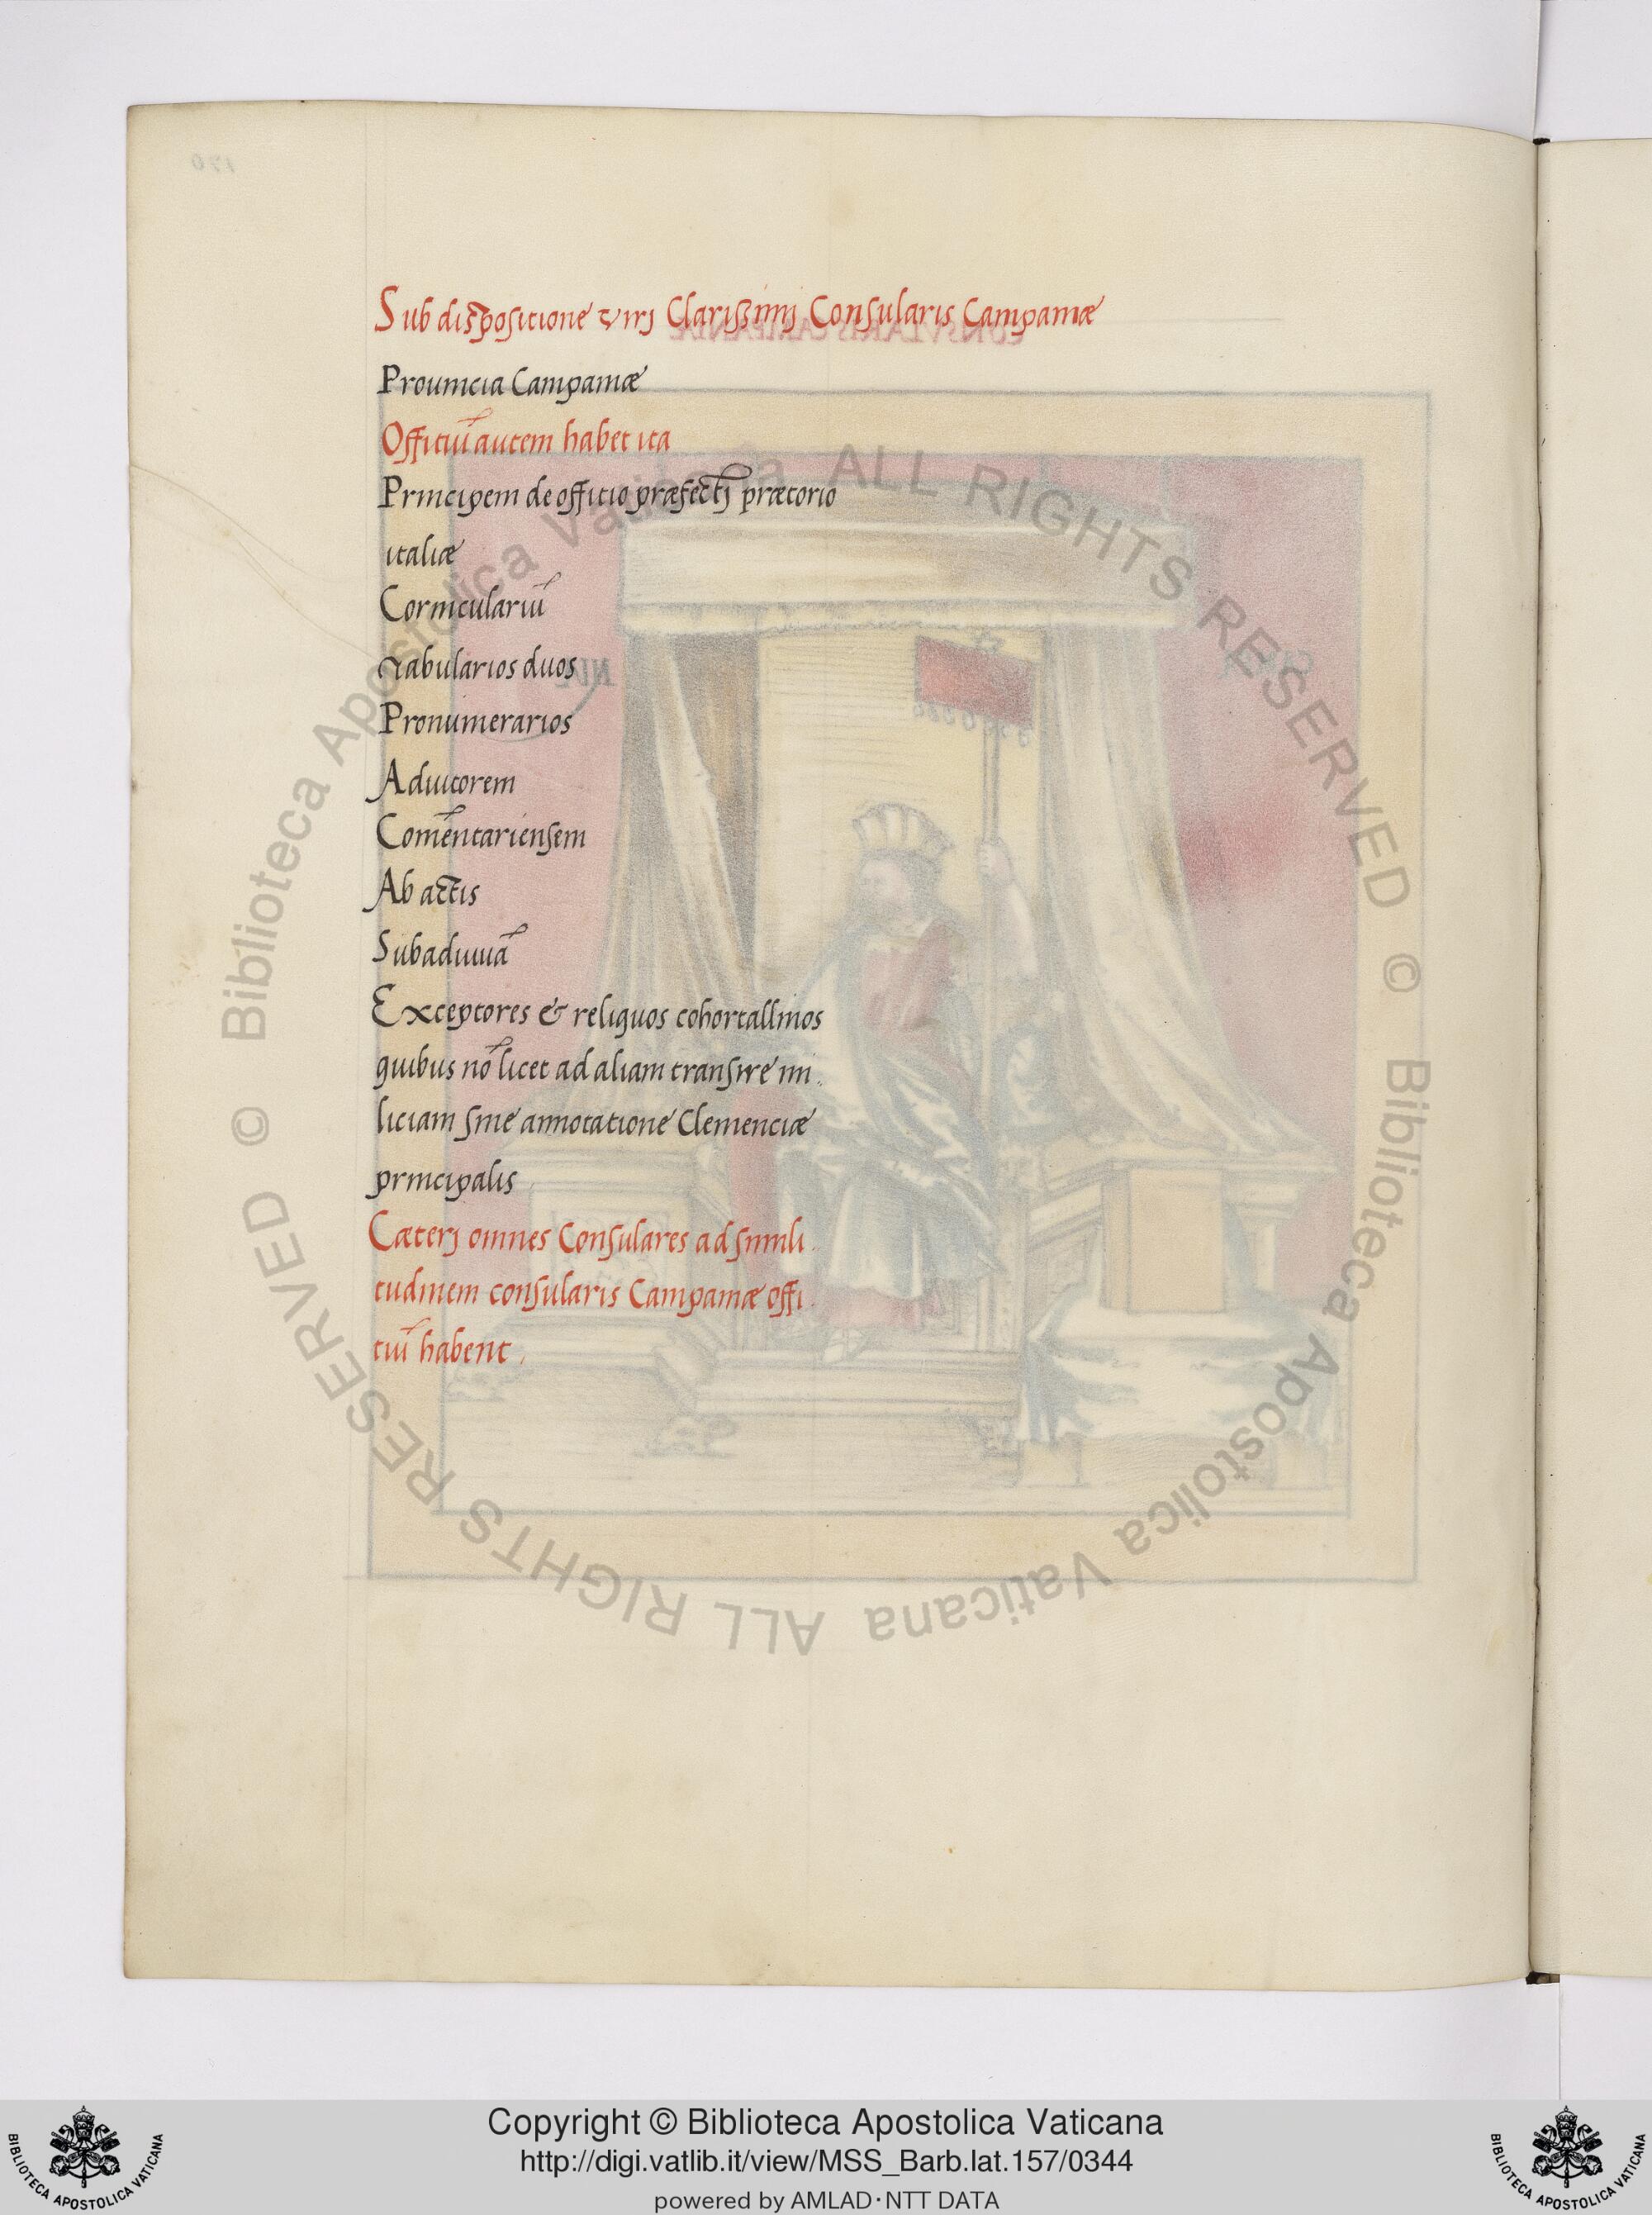 Sub dispositione virj Clarissimj Consularis Campaniæ
Prouincia Campaniæ
Offitiū autem habet ita
Principem de offitio præfectj prætorio
italiæ
Corniculariū
Tabularios duos
Pronumerarios
Adiutorem
Comētariensem
Ab actis
Subadiuuā
Exceptores & reliquos cohortallinos
quibus nō licet ad aliam transire mi
liciam sine annotatione Clemenciæ
principalis
Cæterj omnes Consulares ad simili
tudinem consularis Campaniæ offi
tiū habent.
© Biblioteca Apostolica Vaticana ALL RIGHTS RESERVED
© Biblioteca Apostolica Vaticana ALL RIGHTS RESERVED
Copyright © Biblioteca Apostolica Vaticana
http://digi.vatlib.it/view/MSS_Barb.lat.157/0344
powered by AMLAD·NTT DATA
BIBLIOTECA APOSTOLICA VATICANA
BIBLIOTECA APOSTOLICA VATICANA